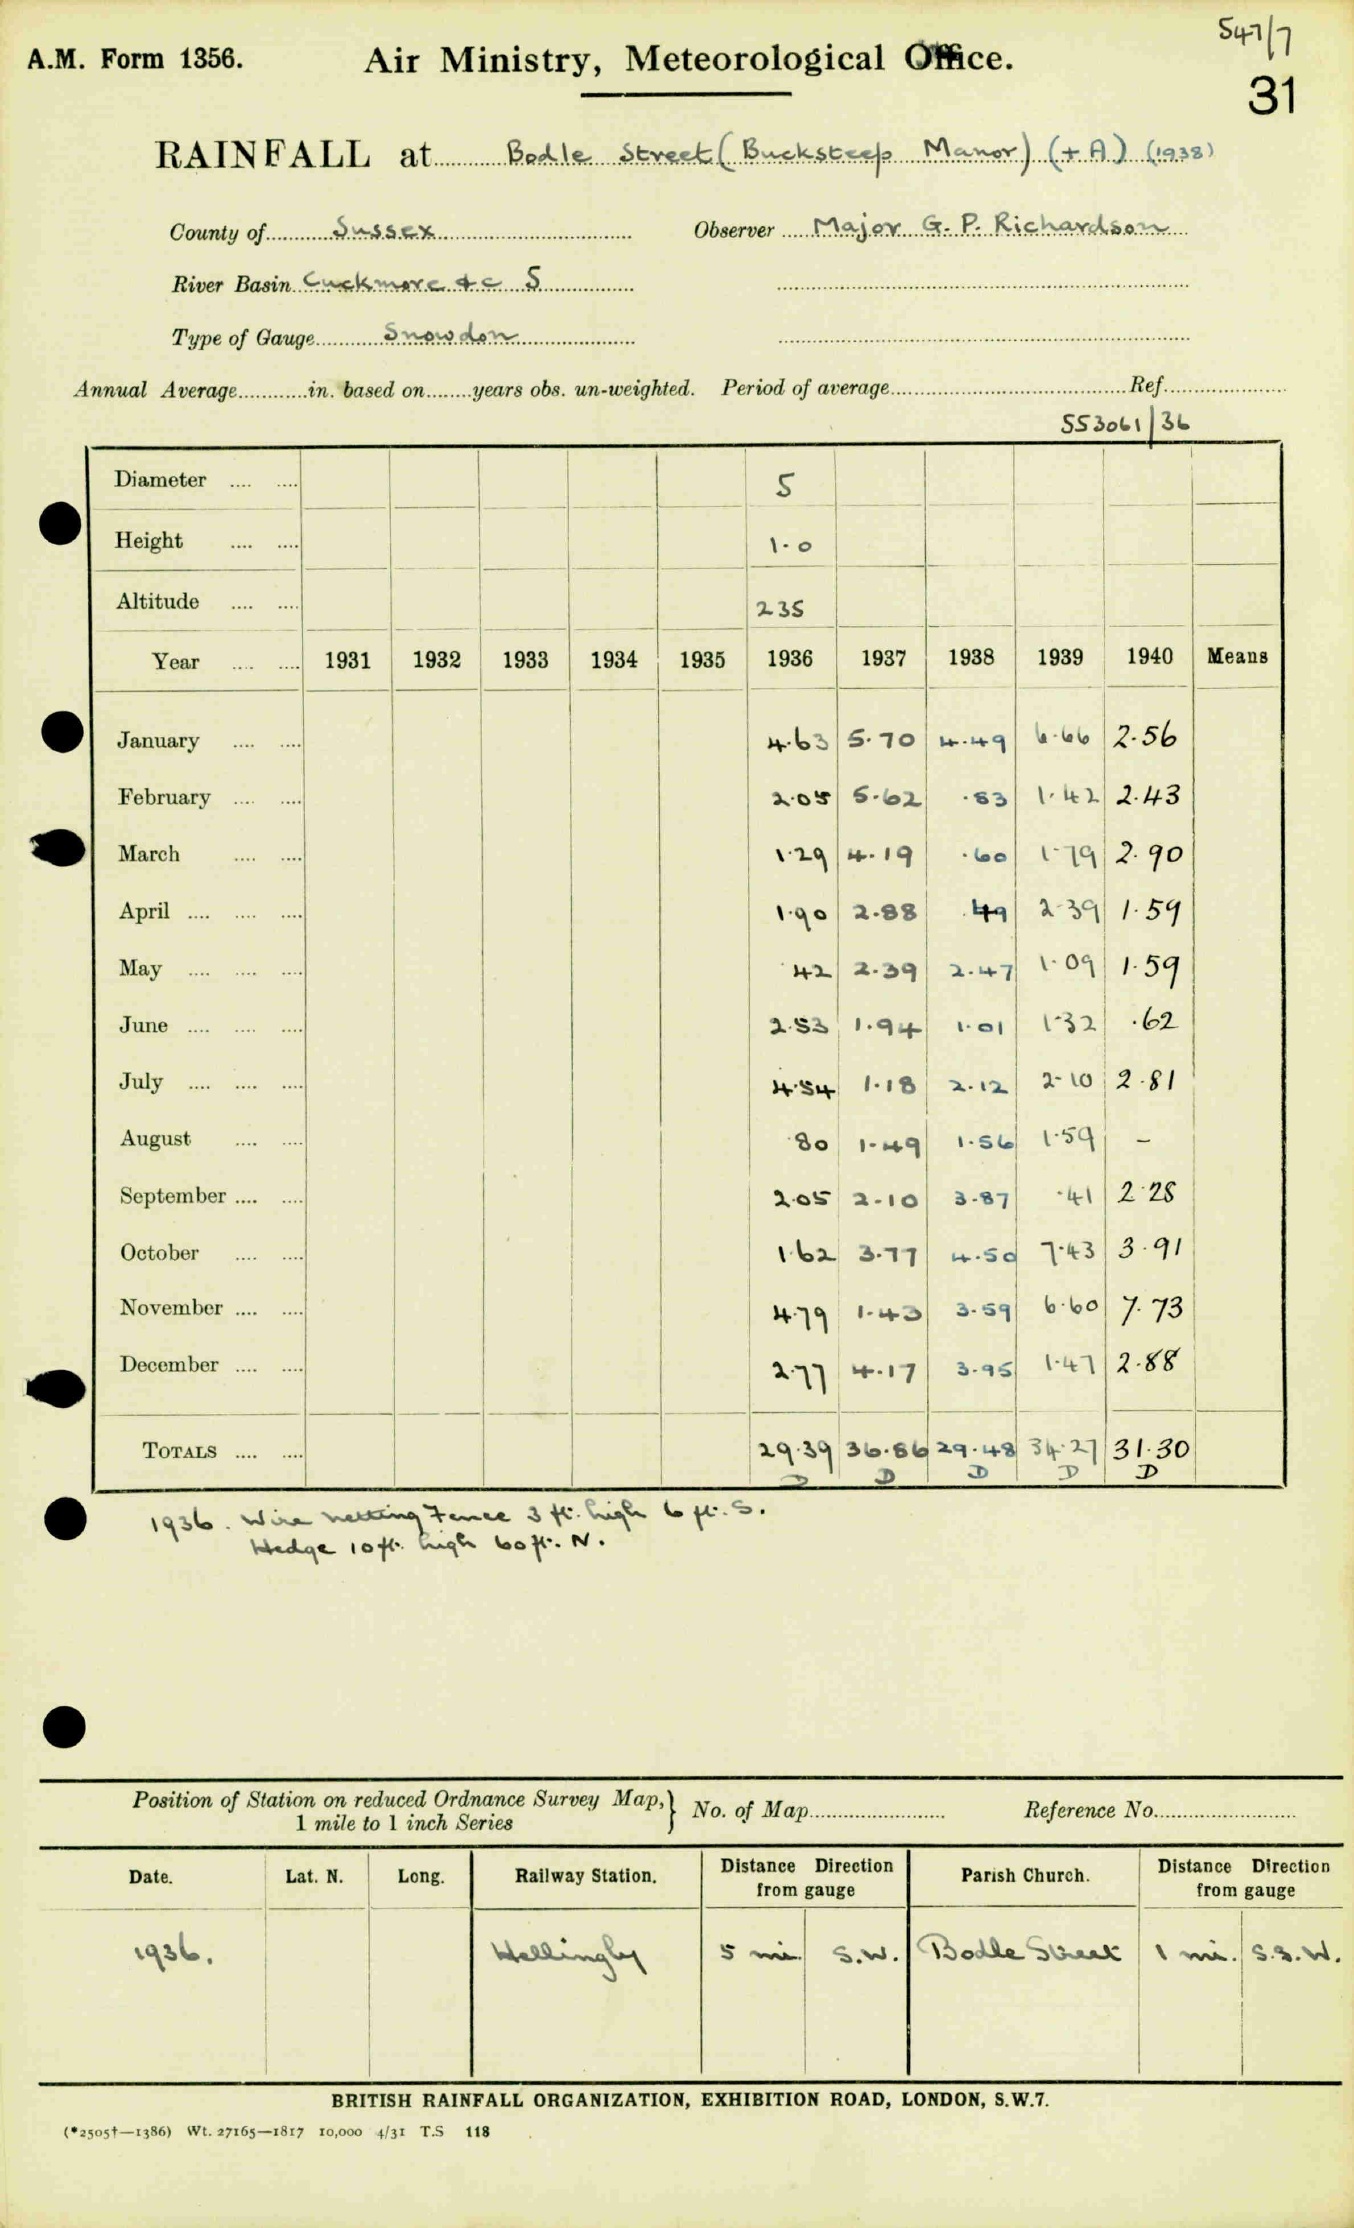 547/7
A.M. Form 1356. Air Ministry, Meteorological Office.
31
RAINFALL at Bodle Street (Bucksteep Manor) (+A) (1938)
County of Sussex Observer Major G. P. Richardson
River Basin Cuckmere &c S
Type of Gauge Snowdon
Annual Average in. based on years obs. un-weighted. Period of average Ref.
553061/36
Diameter 5
Height 1.0
Altitude 235
Year 1931 1932 1933 1934 1935 1936 1937 1938 1939 1940 Means
January 4.63 5.70 4.49 6.66 2.56
February 2.05 5.62 .83 1.42 2.43
March 1.29 4.19 .60 1.79 2.90
April 1.90 2.88 .49 2.39 1.59
May .42 2.39 2.47 1.09 1.59
June 2.53 1.94 1.01 1.32 .62
July 4.54 1.18 2.12 2.10 2.81
August .80 1.49 1.56 1.59 –
September 2.05 2.10 3.87 .41 2.28
October 1.62 3.77 4.50 7.43 3.91
November 4.79 1.43 3.59 6.60 7.73
December 2.77 4.17 3.95 1.47 2.88
TOTALS 29.39 36.86 29.48 34.27 31.30
D D D D D
1936. Wire netting Fence 3 ft. high 6 ft. S.
Hedge 10 ft. high 60 ft. N.
Position of Station on reduced Ordnance Survey Map, } No. of Map Reference No.
1 mile to 1 inch Series
Date. Lat. N. Long. Railway Station. Distance Direction from gauge Parish Church. Distance Direction from gauge
1936. Hellingly 5 mi. S.W. Bodle Street 1 mi. S.S.W.
BRITISH RAINFALL ORGANIZATION, EXHIBITION ROAD, LONDON, S.W.7.
(*2505†—1386) Wt. 27165—1817 10,000 4/31 T.S 118